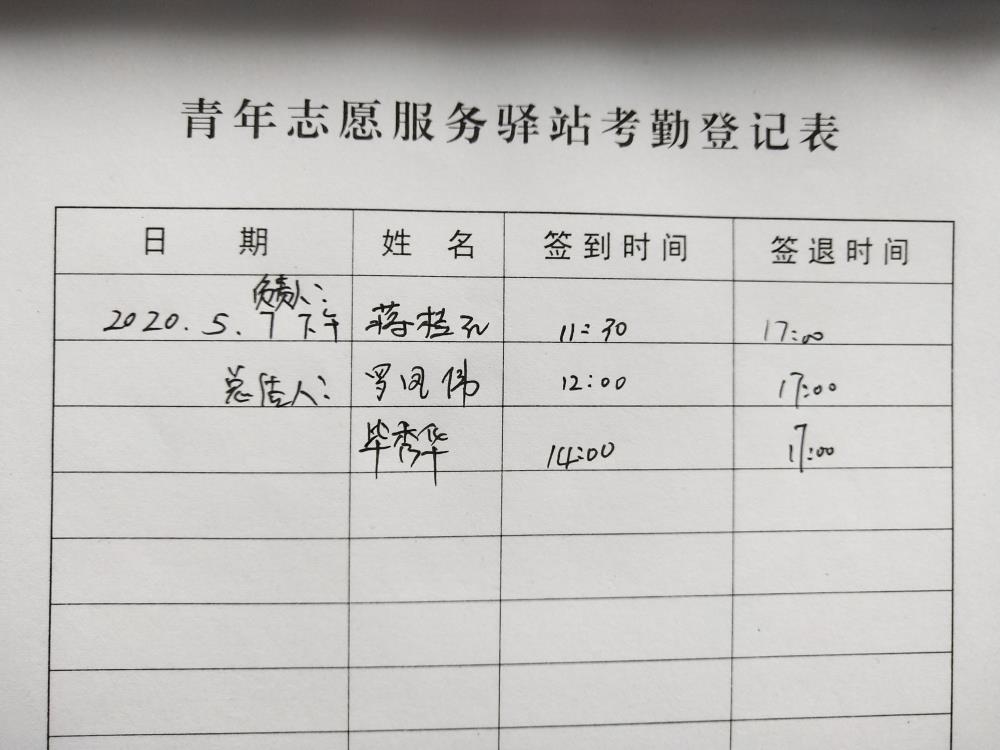 青年志愿服务驿站考勤登记表
日 期 姓 名 签到时间 签退时间
负责人:
2020.5.7下午 蒋桂 11:30 17:00
总结人: 罗凤伟 12:00 17:00
毕秀华 14:00 17:00